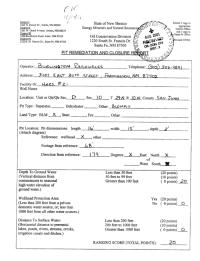 State of New Mexico
Energy Minerals and Natural Resources
Oil Conservation Division
1220 South St. Francis Dr.
Santa Fe, NM 87505
PIT REMEDIATION AND CLOSURE REPORT
Operator: BURLINGTON RESOURCES Telephone: (505)
Address: 3401 EAST 30TH STREET, FARMINGTON, NM 87402
Facility or
Well Name
Location: Unit or Qtr/Qtr Sec D Sec 10 T 29N R County SAN JUAN
Pit Type: Separator Dehydrator Other BLOWPIT
Land Type: BLM X State Fee Other
Pit Location: Pit dimensions: length 16' width 15' depth
(Attach diagram)
Reference: wellhead X other
Footage from reference:
Direction from reference: 179 Degrees X East North
of
West South X
Depth To Ground Water
(Vertical distance from
contaminants to seasonal
high water elevation of
ground water.)
Less than 50 feet (20 points)
50 feet to 99 feet (10 points)
Greater than 100 feet (0 points) 20
Wellhead Protection Area
(Less than 200 feet from a private
domestic water source, or; less than
1000 feet from all other water sources.)
Yes (20 points)
No (0 points) 0
Distance To Surface Water
(Horizontal distance to perennial
lakes, ponds, rivers, streams, creeks,
irrigation canals and ditches.)
Less than 200 feet (20 points)
200 feet to 1000 feet (10 points)
Greater than 1000 feet (0 points) 0
RANKING SCORE (TOTAL POINTS): 20